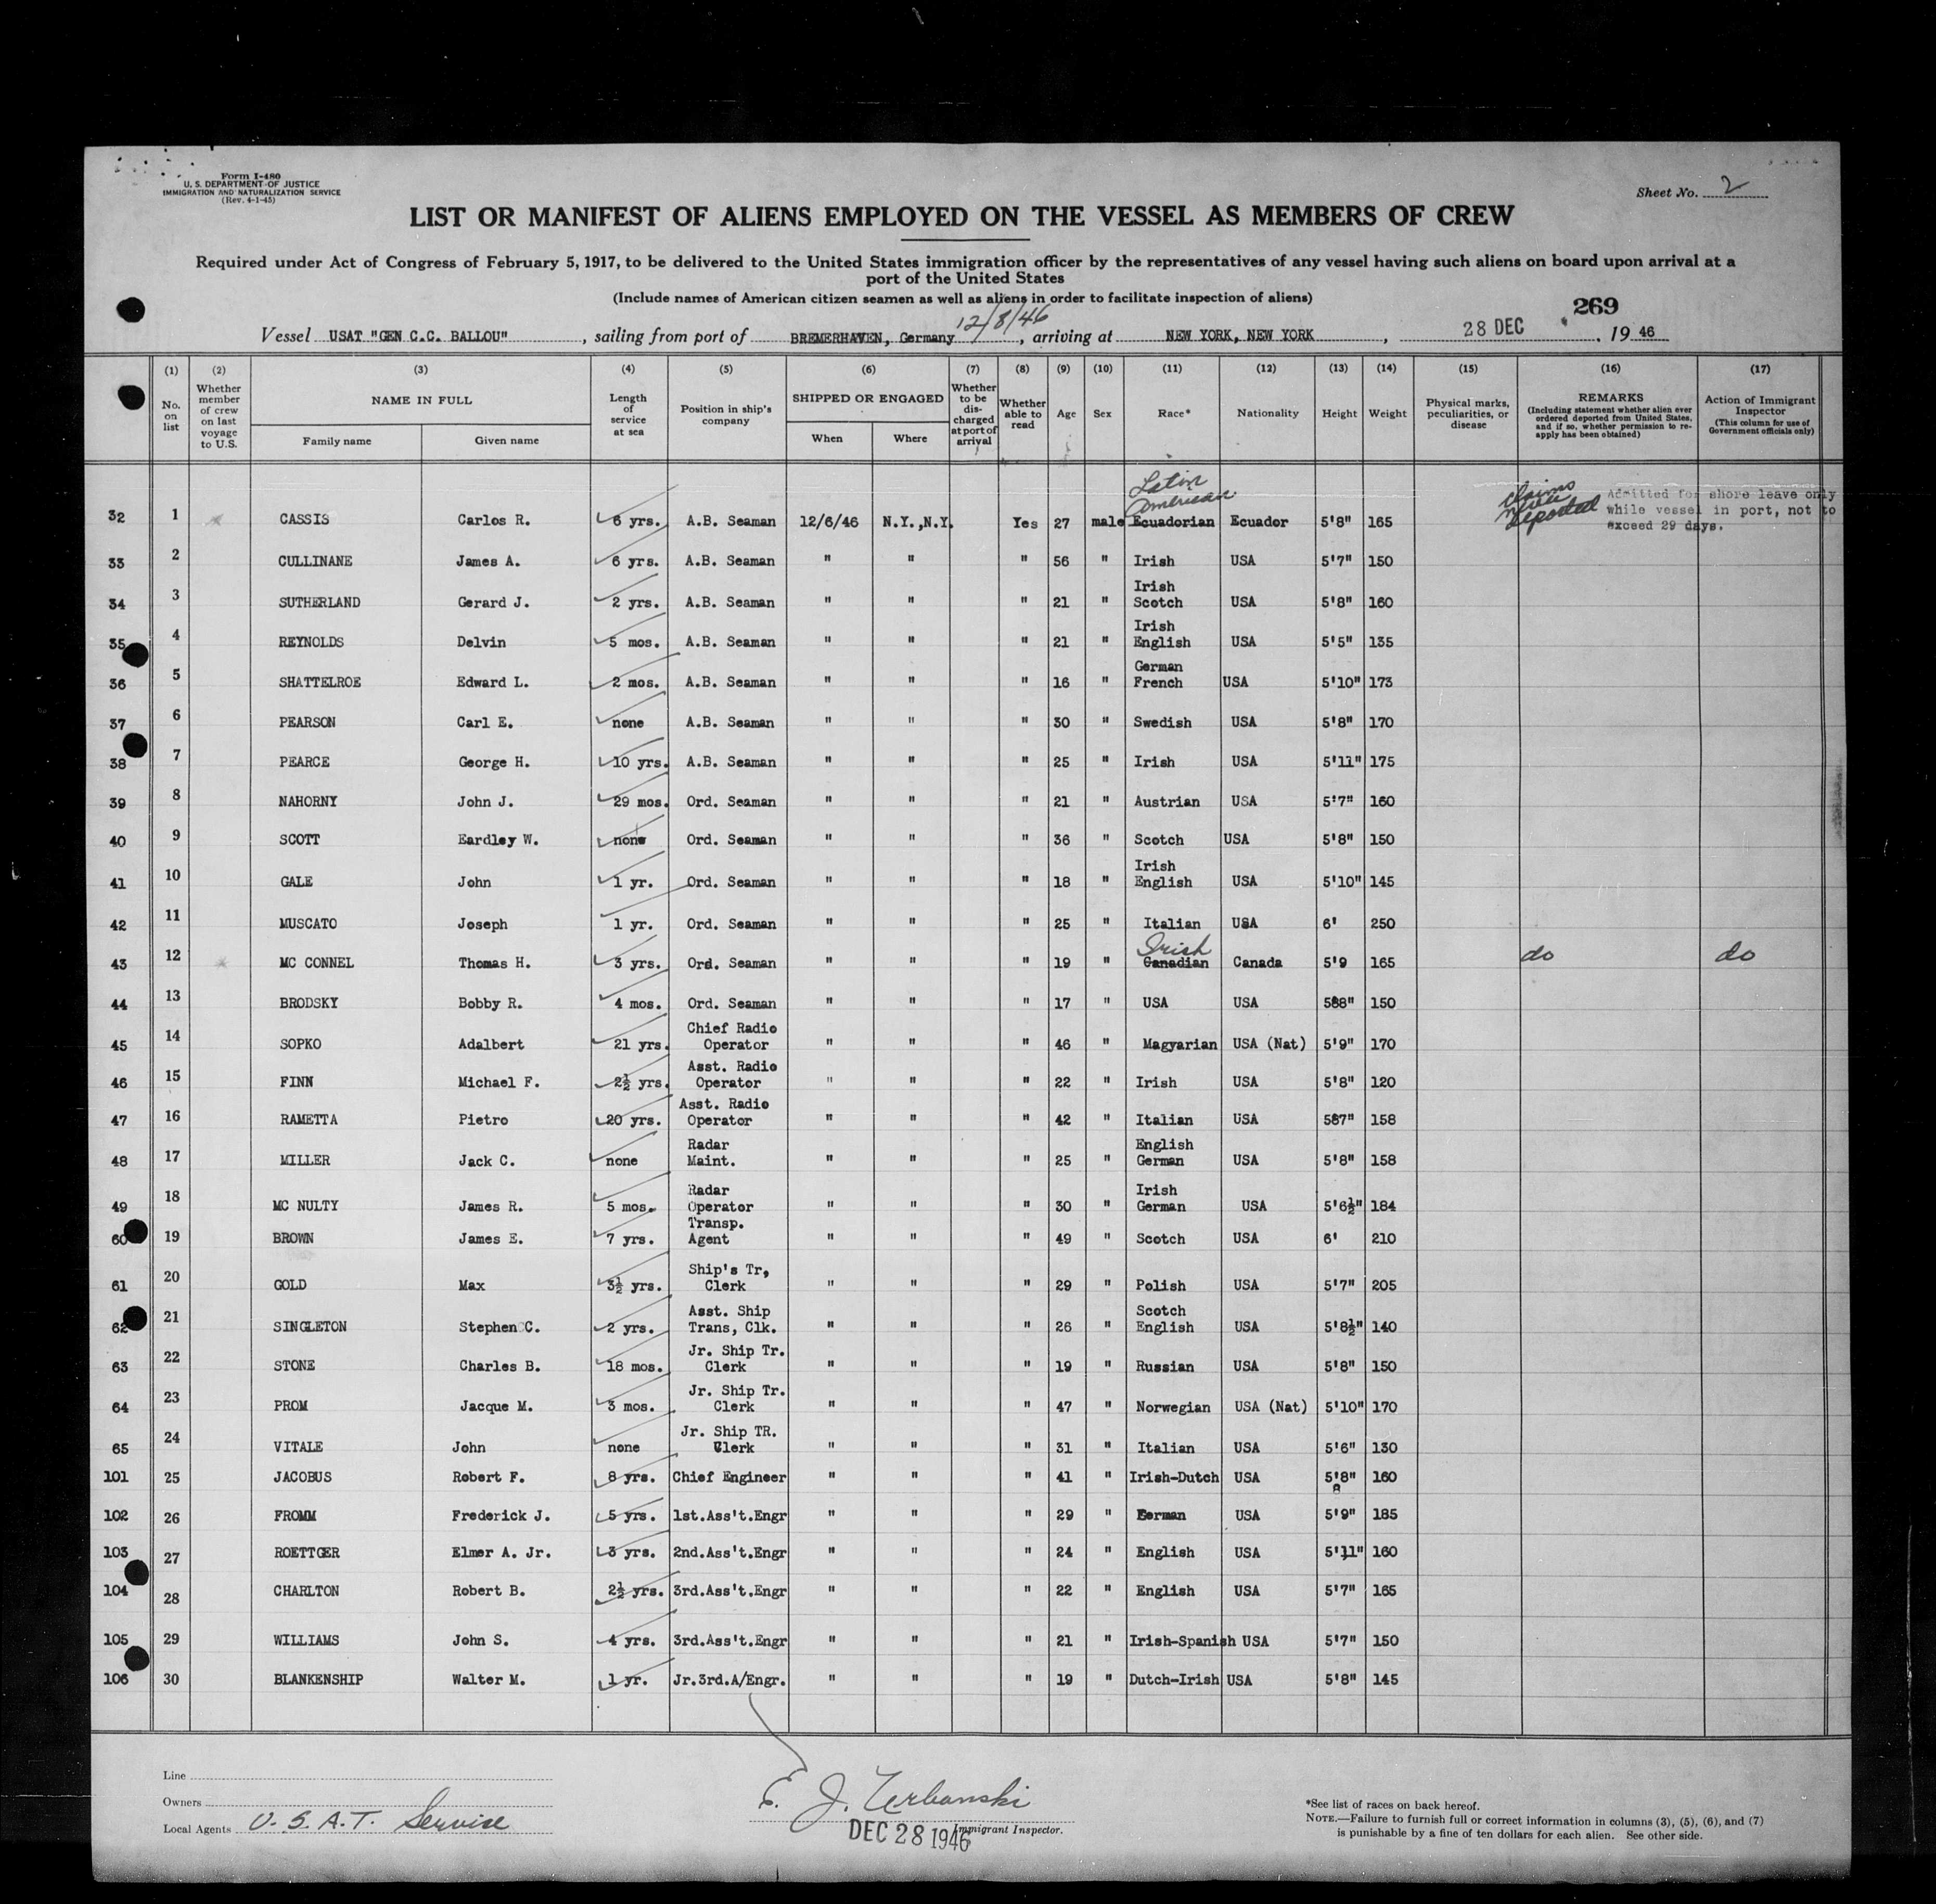 Form I-480
U. S. DEPARTMENT OF JUSTICE
IMMIGRATION AND NATURALIZATION SERVICE
(Rev. 4-1-45)
Sheet No. 2
LIST OR MANIFEST OF ALIENS EMPLOYED ON THE VESSEL AS MEMBERS OF CREW
Required under Act of Congress of February 5, 1917, to be delivered to the United States immigration officer by the representatives of any vessel having such aliens on board upon arrival at a
port of the United States
(Include names of American citizen seamen as well as aliens in order to facilitate inspection of aliens)
269
12/8/46
Vessel USAT "GEN C.C. BALLOU", sailing from port of BREMERHAVEN, Germany, arriving at NEW YORK, NEW YORK, 28 DEC, 19 46
(1) No. on list
(2) Whether member of crew on last voyage to U.S.
(3) NAME IN FULL Family name Given name
(4) Length of service at sea
(5) Position in ship's company
(6) SHIPPED OR ENGAGED When Where
(7) Whether to be discharged at port of arrival
(8) Whether able to read
(9) Age
(10) Sex
(11) Race*
(12) Nationality
(13) Height
(14) Weight
(15) Physical marks, peculiarities, or disease
(16) REMARKS (Including statement whether alien ever ordered deported from United States, and if so, whether permission to re-apply has been obtained)
(17) Action of Immigrant Inspector (This column for use of Government officials only)
32 1 CASSIS Carlos R. 6 yrs. A.B. Seaman 12/6/46 N.Y.,N.Y. Yes 27 male Latin American Ecuadorian Ecuador 5'8" 165 claims deported Admitted for shore leave only while vessel in port, not to exceed 29 days.
33 2 CULLINANE James A. 6 yrs. A.B. Seaman " " " 56 " Irish USA 5'7" 150
34 3 SUTHERLAND Gerard J. 2 yrs. A.B. Seaman " " " 21 " Irish Scotch USA 5'8" 160
35 4 REYNOLDS Delvin 5 mos. A.B. Seaman " " " 21 " Irish English USA 5'5" 135
36 5 SHATTELROE Edward L. 2 mos. A.B. Seaman " " " 16 " German French USA 5'10" 173
37 6 PEARSON Carl E. none A.B. Seaman " " " 30 " Swedish USA 5'8" 170
38 7 PEARCE George H. 10 yrs. A.B. Seaman " " " 25 " Irish USA 5'11" 175
39 8 NAHORNY John J. 29 mos. Ord. Seaman " " " 21 " Austrian USA 5'7" 160
40 9 SCOTT Eardley W. none Ord. Seaman " " " 36 " Scotch USA 5'8" 150
41 10 GALE John 1 yr. Ord. Seaman " " " 18 " Irish English USA 5'10" 145
42 11 MUSCATO Joseph 1 yr. Ord. Seaman " " " 25 " Italian USA 6' 250
43 12 MC CONNEL Thomas H. 3 yrs. Ord. Seaman " " " 19 " Irish Canadian Canada 5'9 165 do do
44 13 BRODSKY Bobby R. 4 mos. Ord. Seaman " " " 17 " USA USA 588" 150
45 14 SOPKO Adalbert 21 yrs. Chief Radio Operator " " " 46 " Magyarian USA (Nat) 5'9" 170
46 15 FINN Michael F. 2½ yrs. Asst. Radio Operator " " " 22 " Irish USA 5'8" 120
47 16 RAMETTA Pietro 20 yrs. Asst. Radio Operator " " " 42 " Italian USA 587" 158
48 17 MILLER Jack C. none Radar Maint. " " " 25 " English German USA 5'8" 158
49 18 MC NULTY James R. 5 mos. Radar Operator " " " 30 " Irish German USA 5'6½" 184
60 19 BROWN James E. 7 yrs. Transp. Agent " " " 49 " Scotch USA 6' 210
61 20 GOLD Max 3½ yrs. Ship's Tr, Clerk " " " 29 " Polish USA 5'7" 205
62 21 SINGLETON Stephen C. 2 yrs. Asst. Ship Trans, Clk. " " " 26 " Scotch English USA 5'8½" 140
63 22 STONE Charles B. 18 mos. Jr. Ship Tr. Clerk " " " 19 " Russian USA 5'8" 150
64 23 PROM Jacque M. 3 mos. Jr. Ship Tr. Clerk " " " 47 " Norwegian USA (Nat) 5'10" 170
65 24 VITALE John none Jr. Ship TR. Clerk " " " 31 " Italian USA 5'6" 130
101 25 JACOBUS Robert F. 8 yrs. Chief Engineer " " " 41 " Irish-Dutch USA 5'8" 160
102 26 FROMM Frederick J. 5 yrs. 1st.Ass't.Engr " " " 29 " German USA 5'9" 185
103 27 ROETTGER Elmer A. Jr. 3 yrs. 2nd.Ass't.Engr " " " 24 " English USA 5'11" 160
104 28 CHARLTON Robert B. 2½ yrs. 3rd.Ass't.Engr " " " 22 " English USA 5'7" 165
105 29 WILLIAMS John S. 4 yrs. 3rd.Ass't.Engr " " " 21 " Irish-Spanish USA 5'7" 150
106 30 BLANKENSHIP Walter M. 1 yr. Jr.3rd.A/Engr. " " " 19 " Dutch-Irish USA 5'8" 145
Line
Owners
Local Agents U.S.A.T. Service
E. J. Urbanski
Immigrant Inspector.
DEC 28 1946
*See list of races on back hereof.
NOTE.—Failure to furnish full or correct information in columns (3), (5), (6), and (7)
is punishable by a fine of ten dollars for each alien. See other side.